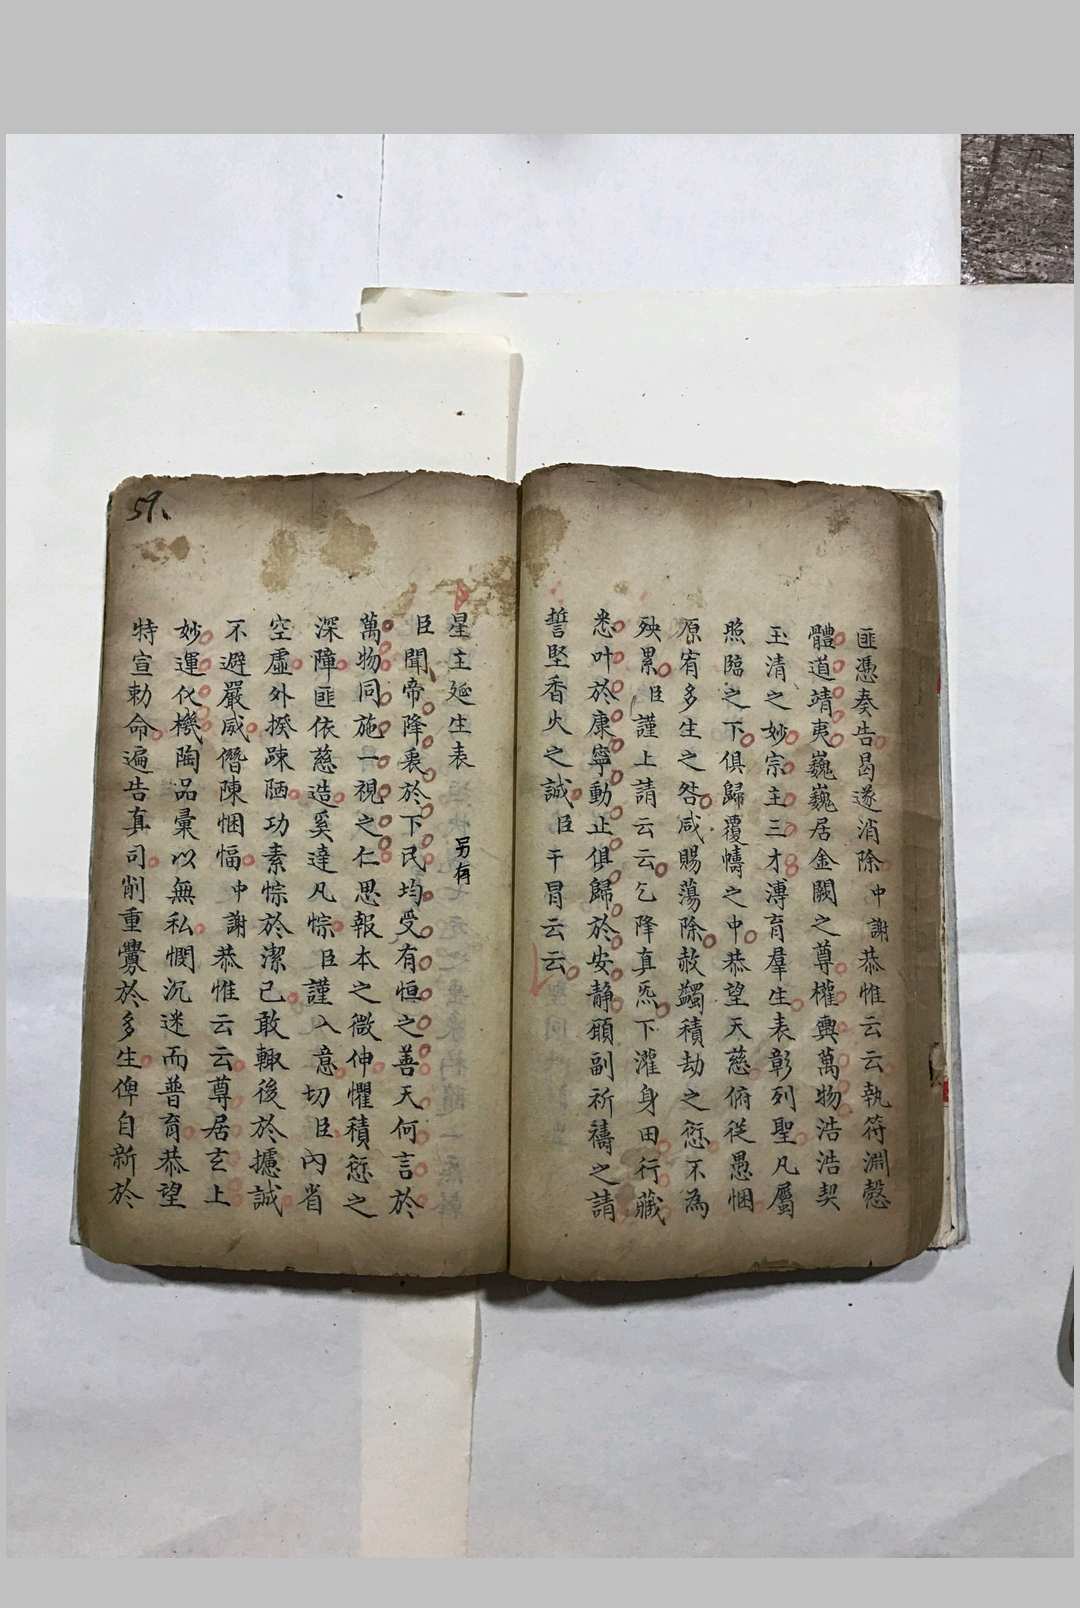 匪憑奏告曷遂消除中謝恭惟云云執符淵愨
體道靖夷巍巍居金闕之尊權輿萬物浩浩契
玉清之妙宗主三才溥育羣生表彰列聖凡屬
照臨之下俱歸覆幬之中恭望天慈俯從愚悃
原宥多生之咎咸賜蕩除赦蠲積劫之愆不為
殃累臣謹上請云云乞降真炁下灌身田行藏
悉叶於康寧動止俱歸於安靜願副祈禱之請
誓堅香火之誠臣干冒云云
星主延生表 另有
臣聞帝降衷於下民均受有恒之善天何言於
萬物同施一視之仁思報本之微伸懼積愆之
深障匪依慈造奚達凡悰臣謹入意切臣內省
空虛外揆踈陋功素悰於潔己敢輙後於攄誠
不避嚴威僭陳悃愊中謝恭惟云云尊居玄上
妙運化機陶品彙以無私憫沉迷而普育恭望
特宣勅命遍告真司削重釁於多生俾自新於
59、